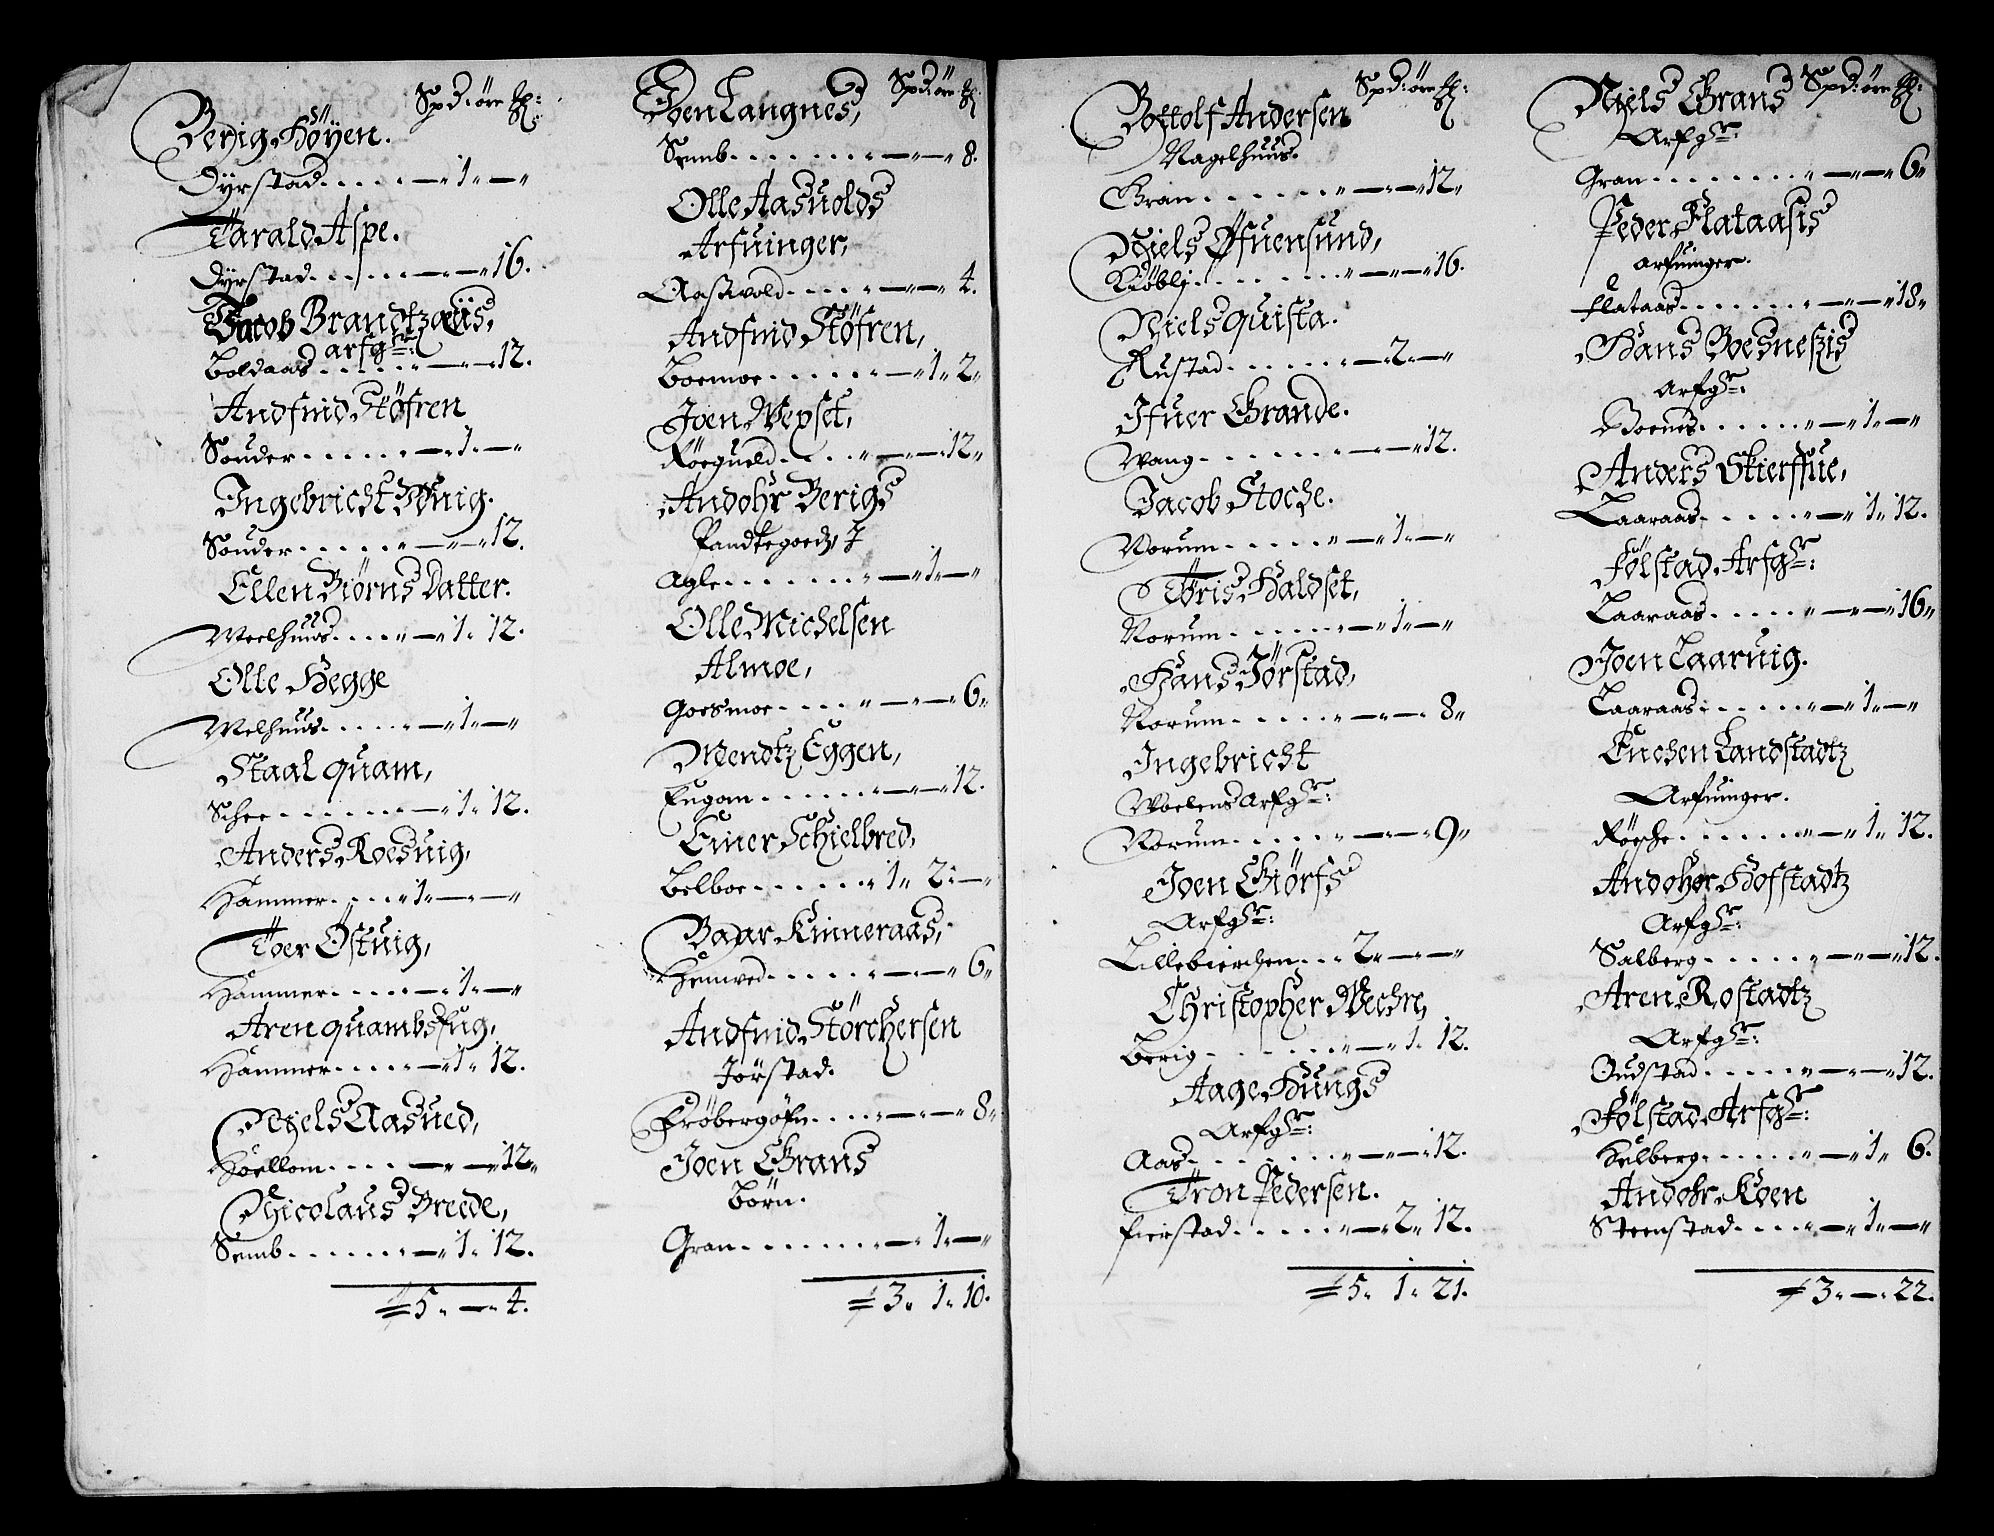 Spd: öre
Berig Höyen.
Dyrstad. . . . . . „ — „ 1 „ — „
Tarald Aspe.
Dyrstad. . . . . . „ — „ — „ 16.
Jacob Brandtzaüs,
arfgr:
Boldaas. . . . . . „ — „ — „ 12.
Andfuid Stöfren
Souder. . . . . . „ — „ 1 „ — „
Ingebricht
Souder. . . . . . „ — „ — „ 12.
Ellen Biörns Datter.
Weelhuus. . . . „ — „ 1 „ 12.
Olle Hegge
Welhuus. . . . . „ — „ 1 „ — „
Staal quam,
Schee. . . . . . . „ — „ 1 „ 12.
Anders Roesuig,
Hammer. . . . „ 1 „ — „ — „
Toer Östuig,
Hammer. . . . . „ — „ 1 „ — „
Aren quambsfug,
Hammer. . . . . „ — „ 1 „ 12.
Niels Aasued,
Höellom. . . . . — „ — „ 12 „
Nicolaus Breede,
Semb. . . . . . . „ — „ 1 „ 12.
5 „ — „ 4.
Spd: öre
Joen Langnes,
Semb. . . . . . . . „ — „ — „ 8.
Olle Aasuolds
Arfuinger,
Aasuold. . . . . „ — „ — „ 4.
Andfuid Stöfren,
Boemoe. . . . . . „ — „ 1 „ 2 „
Joen Wepset,
Röegueld. . . . „ — „ — „ 12 „
Andohr Berigs
Pandtegoedz, J
Agle. . . . . . . . „ — „ 1 „ — „
Olle Michelsen
Almoe,
Goesmoe. . . . . „ — „ — „ 6 „
Mendtz Eggen,
Fugam. . . . . . . „ — „ — „ 12.
Einer Schielbred,
Belboe. . . . . . . „ 1 „ 2 „ — „
Baar Kinneraas,
Hemved. . . . . . „ — „ — „ 6 „
Andfuid Störchersen
Jörstad.
Fröbergöfn. . . . „ — „ — „ 8 „
Joen Grans
Börn.
Gran. . . . . . . . „ — „ 1 „ — „
3 „ 1 „ 10.
Spd: öre
Bottolf Andersen
Nagelhuus.
Gran. . . . . . . . „ — „ — „ 12 „
Niels Öfuensund,
Kiöblj. . . . . . . . „ — „ — „ 16.
Niels quista.
Rustad. . . . . . . „ — „ 2 „ — „
Ifuer Grande.
Wang. . . . . . . . „ — „ — „ 12.
Jacob Stoche.
Norum. . . . . . „ — „ 1 „ — „
Töris Haldset,
Norum. . . . . . . „ — „ 1 „ — „
Hans Jörstad,
Norum. . . . . . „ — „ — „ 8 „
Ingebricht
Woelens Arfgr:
Norum. . . . . . „ — „ — „ 9 „
Joen Giörfs
Arfgr:
Lillebierchen. . . 2 „ — „ — „
Christopher Wechre,
Berig. . . . . . . . „ — „ 1 „ 12.
Aage Hüngs
Arfgr:
Aas. . . . . . . . . „ — „ — „ 12.
Tron Pedersen.
Fierstad. . . . . . „ — „ 2 „ 12.
5 „ 1 „ 21.
Spd: öre
Niels Grans
Arfgr:
Gran. . . . . . . . „ — „ — „ 6 „
Peder Flataasis
arfuinger.
Flataas. . . . . . . „ — „ — „ 18 „
Hans Boesneszis
Arfgr:
Boenes. . . . . . „ — „ 1 „ — „
Anders Skierffue,
Laaraas. . . . . . „ — „ 1 „ 12.
Fölstad Arfgr:
Laaraas. . . . . . „ — „ — „ 16 „
Joen Laaruig.
Laaraas. . . . . . „ — „ 1 „ — „
Euchen Landstadtz
Arfuinger.
Rösche. . . . . . . „ — „ 1 „ 12.
Andoher Hofstadtz
Arfgr:
Salberg. . . . . . „ — „ — „ 12.
Aren Rostadtz
Arfgr:
Oudstad. . . . . . „ — „ — „ 12.
Fölstad Arfgr:
Helberg. . . . . . „ — „ 1 „ 6.
Andohr Koen
Steenstad. . . . . „ — „ 1 „ — „
3 „ — „ 22.